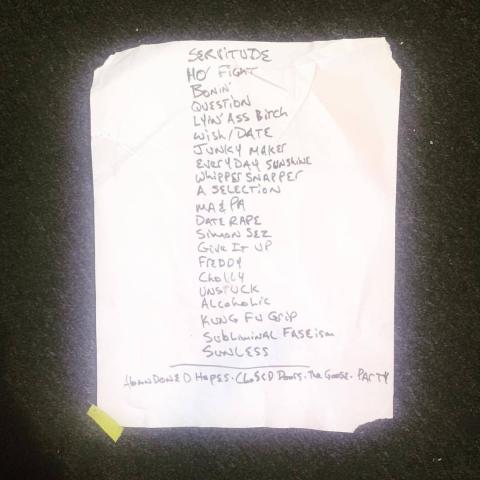 SERVITUDE
MO' FIGHT
BONIN'
QUESTION
LYIN' ASS BITCH
WISH/DATE
JUNKY MAKER
EVERYDAY SUNSHINE
WHIPPER SNAPPER
A SELECTION
MA & PA
DATE RAPE
SIMON SEZ
GIVE IT UP
FREDDY
CHOLLY
UNSTUCK
ALCOHOLIC
KUNG FU GRIP
SUBLIMINAL FASEISM
SUNLESS
ABANDONED HOPES · CLOSED DOORS · THE GOOSE · PARTY